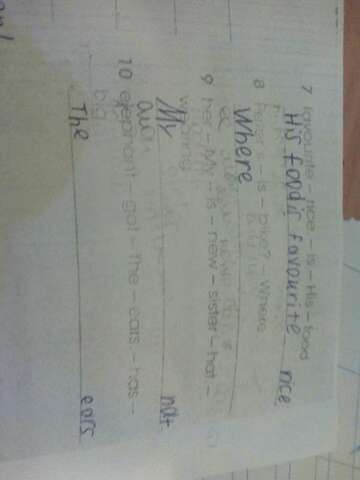 7 favourite – rice – is – His – food
His food is favourite rice
8 – is – bike? – Where
Where
9 – My – is – new – sister – hat –
wearing
My hat
10 elephant – got – the – ears – has –
big
The ears